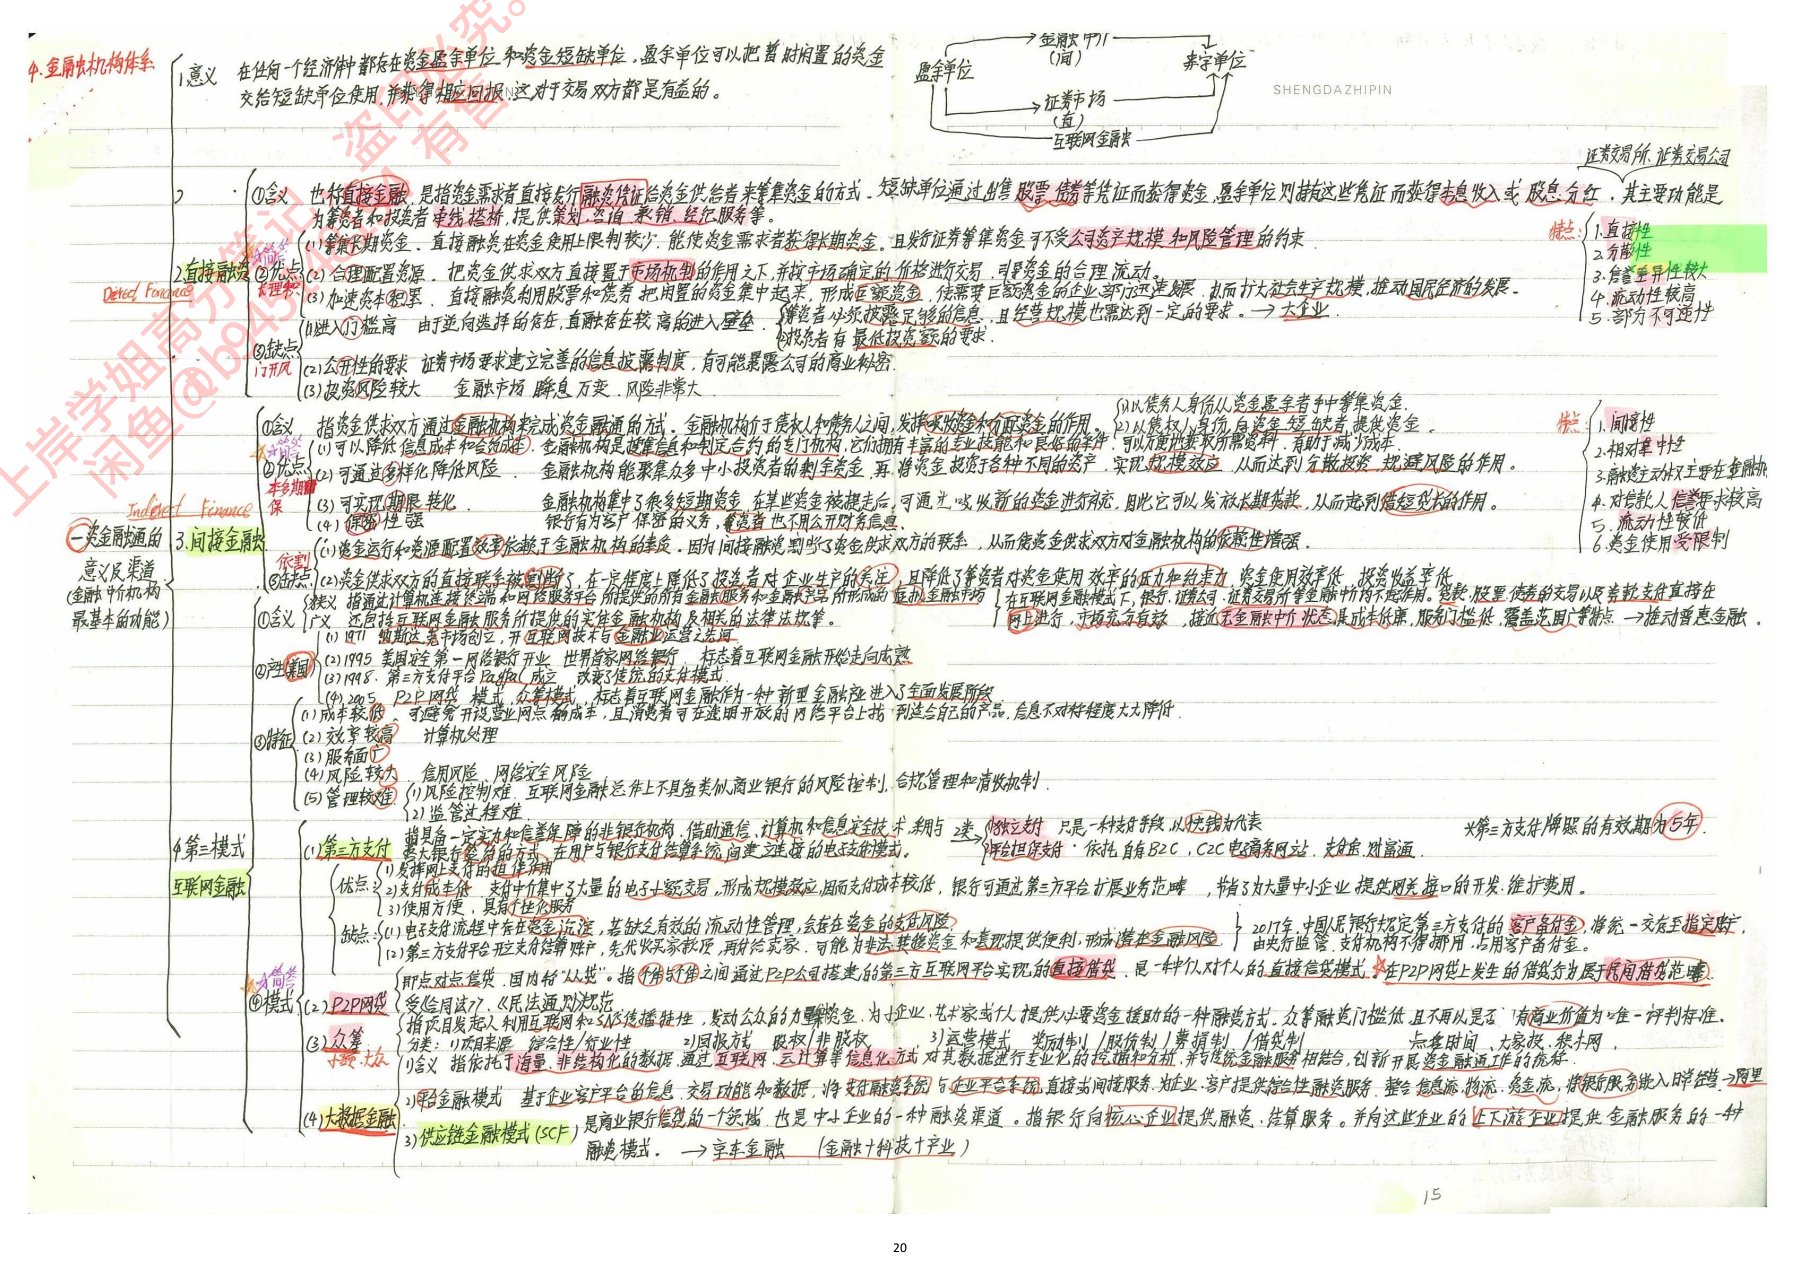 4.金融机构体系
1.意义 在任何一个经济体中都存在资金盈余单位和资金短缺单位,盈余单位可以把暂时闲置的资金
交给短缺单位使用,并获得相应回报,这对于交易双方都是有益的。
盈余单位 金融中介 赤字单位
(间)
证券市场
(直)
互联网金融
SHENGDAZHIPIN
证券交易所、证券交易公司
①含义 也称直接金融,是指资金需求者直接发行融资凭证给资金供给者来筹集资金的方式。短缺单位通过出售股票、债券等凭证而获得资金,盈余单位则持有这些凭证而获得本息收入或股息分红。其主要功能是
为筹资者和投资者牵线搭桥,提供策划、咨询、承销、经纪服务等。
2.直接融资
Direct Finance
☆简答
②优点
(1)筹集长期资金。直接融资在资金使用上限制较少,能使资金需求者获得长期资金。且发行证券筹集资金可不受公司资产规模和风险管理的约束
(2)合理配置资源。把资金供求双方直接置于市场机制的作用之下,并按市场确定的价格进行交易,引导资金的合理流动。
(3)加速资本积累。直接融资利用股票和债券把闲置的资金集中起来,形成巨额资金,使需要巨额资金的企业、部门迅速发展,从而扩大社会生产规模,推动国民经济的发展。
③缺点
门开风
(1)进入门槛高 由于逆向选择的存在,直融存在较高的进入壁垒
筹资者必须披露足够的信息,且经营规模也需达到一定的要求。→大企业
投资者有最低投资额的要求.
(2)公开性的要求 证券市场要求建立完善的信息披露制度,有可能暴露公司的商业秘密.
(3)投资风险较大 金融市场瞬息万变,风险非常大
特点:
1.直接性
2.分散性
3.信誉差异性较大
4.流动性较高
5.部分不可逆性
一、资金融通的
意义及渠道
(金融中介机构
最基本的功能)
Indirect Finance
3.间接金融
①含义 指资金供求双方通过金融机构来完成资金融通的方式。金融机构介于债权人和债务人之间,发挥吸收资金和分配资金的作用。
(1)以债务人身份从资金盈余者手中筹集资金.
(2)以债权人身份向资金短缺者提供资金.
☆简答
②优点
本多期
保
(1)可以降低信息成本和合约成本. 金融机构是搜集信息和制定合约的专门机构,它们拥有丰富的专业技能和良好的条件,可以方便地获取所需资料,有助于减少成本
(2)可通过多样化降低风险 金融机构能聚集众多中小投资者的剩余资金,再将资金投资于各种不同的资产,实现规模效应,从而达到分散投资、规避风险的作用。
(3)可实现期限转化 金融机构集中了很多短期资金,在某些资金被提走后,可通过吸收新的资金进行补充,因此它可以发放长期贷款,从而起到借短贷长的作用。
(4)保密性强 银行有为客户保密的义务,筹资者也不用公开财务信息.
依割
③缺点
(1)资金运行和资源配置效率依赖于金融机构的素质。因为间接融资割断了资金供求双方的联系,从而使资金供求双方对金融机构的依赖性增强.
(2)资金供求双方的直接联系被割断了,在一定程度上降低了投资者对企业生产的关注,且降低了筹资者对资金使用效率的压力和约束力,资金使用效率低,投资收益率低
特点:
1.间接性
2.相对集中性
3.融资主动权主要在金融机构
4.对借款人信誉要求较高
5.流动性较低
6.资金使用受限制
4.第三模式
互联网金融
①含义
狭义 指通过计算机连接终端和网络服务平台所提供的所有金融服务和金融产品所形成的虚拟金融市场
广义 还包括互联网金融服务所提供的实体金融机构及相关的法律法规等。
在互联网金融模式下,银行、证券公司、证券交易所等金融中介均不起作用。贷款、股票、债券的交易以及券款支付直接在
网上进行,市场充分有效,接近无金融中介状态,具成本低廉,服务门槛低,覆盖范围广等特点→推动普惠金融。
②产生(美国)
(1)1971 纳斯达克市场创立,开互联网技术与金融业运营之先河
(2)1995 美国安全第一网络银行开业 世界首家网络银行 标志着互联网金融开始走向成熟
(3)1998 第三方支付平台PayPal成立 改变了传统的支付模式
(4)2005 P2P网贷模式、众筹模式,标志着互联网金融作为一种新型金融产业进入了全面发展阶段
③特征
(1)成本较低 可避免开设营业网点的成本,且消费者可在透明开放的网络平台上找到适合自己的产品,信息不对称程度大大降低.
(2)效率较高 计算机处理
(3)服务面广
(4)风险较大 信用风险、网络安全风险
(5)管理较难
(1)风险控制难 互联网金融总体上不具备类似商业银行的风险控制、合规管理和清收机制.
(2)监管过程难.
☆简答
④模式
(1)第三方支付
指具备一定实力和信誉保障的非银行机构,借助通信、计算机和信息安全技术,采用与
各大银行签约的方式,在用户与银行支付结算系统间建立连接的电子支付模式。
2类→
独立支付 只是一种支付手段,以快钱为代表
平台担保支付 依托自有B2C、C2C电商务网站,支付宝、财富通
*第三方支付牌照的有效期为5年.
优点:
1)发挥网上支付的担保作用
2)支付成本低 支付中介集中了大量的电子小额交易,形成规模效应,因而支付成本较低,银行可通过第三方平台扩展业务范畴,节省了为大量中小企业提供网关接口的开发、维护费用。
3)使用方便,具有个性化服务
缺点:
(1)电子支付流程中存在资金沉淀,若缺乏有效的流动性管理,会存在资金的支付风险
(2)第三方支付平台开立支付结算账户,先代收买家款项,再付给卖家,可能为非法转移资金和套现提供便利,形成潜在金融风险
2017年,中国人民银行规定第三方支付的客户备付金,将统一交存至指定账户,
由央行监管,支付机构不得挪用、占用客户备付金。
(2)P2P网贷
即点对点信贷,国内称“人贷”。指个体与个体之间通过P2P公司搭建的第三方互联网平台实现的直接借贷,是一种个人对个人的直接信贷模式.☆在P2P网贷上发生的借贷行为属于民间借贷范畴
受《合同法》、《民法通则》规范
(3)众筹
小额、大众
指项目发起人利用互联网和SNS传播特性,发动公众的力量聚资金,为小企业、艺术家或个人提供必要资金援助的一种融资方式,众筹融资门槛低,且不再以是否拥有商业价值为唯一评判标准。
分类: 1)项目来源 综合性/行业性 2)回报方式 股权/非股权 3)运营模式 奖励制/股份制/募捐制/借贷制 点名时间、大家投、积木网.
(4)大数据金融
1)含义 指依托于海量、非结构化的数据,通过互联网、云计算等信息化方式对其数据进行专业化的挖掘和分析,并与传统金融服务相结合,创新开展资金融通工作的统称
2)平台金融模式 基于企业客户平台的信息、交易功能和数据,将支付融资系统与企业平台系统直接或间接服务,为企业、客户提供综合性融资服务,整合信息流、物流、资金流,将银行服务嵌入日常经营→阿里
3)供应链金融模式(SCF) 是商业银行信贷的一个领域,也是中小企业的一种融资渠道。指银行向核心企业提供融资、结算服务。并向这些企业的上下游企业提供金融服务的一种
融资模式。→京东金融 (金融+科技+产业)
15
20
上岸学姐高分笔记,盗印必究。
闲鱼@b
有售